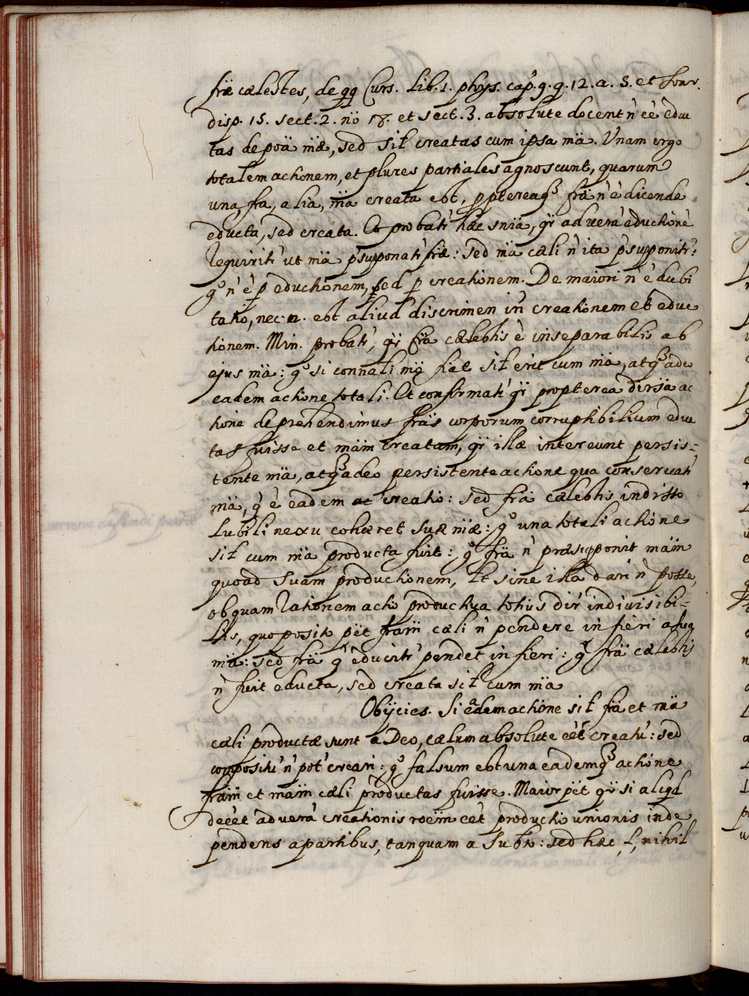 fræ cælestes, de qq Curs. lib. 1. phys. cap. 9. q. 12. a. 3. et
disp. 15. sect. 2. nõ 17. et sect. 3. absolute docent ñ éé edu
tas de poä mæ, sed sil creatas cum ipsa mä. Unam ergo
totalem actionem, et plures partiales agnoscunt, quarum
una fra, alia, mä creata est, ppterea q fra ñ é dicenda
educta, sed creata. Et probatr hæc snia, qr ad verä eductione
requiritr ut mä psupponatr fræ: sed mä cæli ñ ita psupponitr:
gº ñ é p eductionem, sed p creationem. De maiori ñ é dubi
tatio, nec n. est aliud discrimen inr creationem et educ
tionem. Min. probatr, qr fra cælestis é inseparabilis ab
ejus mä: gº si connäli mº fiat sil erit cum mä, atq adeo
eadem actione totali. Et confirmatr qr propterea diversa ac
tione deprehendimus fräs corporum corruptibilium educ
tas fuisse et mäm creatam, qr illæ intereunt persis=
tente mä, atq adeo persistente actione qua conservatr
mä, q é eadem ac creatio: sed fra cælestis indisso
lubili nexu cohæret suæ mæ: gº una totali actione
sil cum mä producta fuit: gº fra ñ præsupponit mäm
quoad suam productionem, et sine illa dari ñ posse,
ob quam rationem actio productiva totius dir indivisibi=
lis, quo posito pët främ cæli ñ pendere in fieri a sua
mä: sed fra q educitr pendet in fieri: gº fra cælestis
ñ fuit educta, sed creata sil cum mä
Obijcies. Si eadem actione sil fra et mä
cæli productæ sunt a Deo, cælum absolute éét creatü: sed
compositü ñ pot creari: gº falsum est una eademq actione
främ et mäm cæli productas fuisse. Maior pët qr si aliqd
deéét ad verä creationis roëm éét productio unionis inde
pendens a partibus, tanquam a subto: sed hæc l, nihil